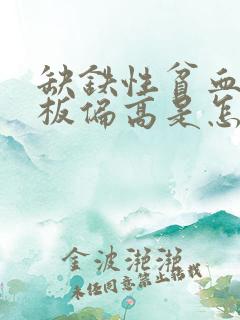 缺铁性贫血
板偏高是怎
金波滟滟
未经同意禁止搭载